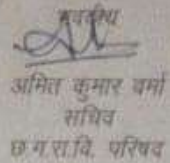 भवदीय
अमित कुमार वर्मा
सचिव
छ.ग.रा.वि. परिषद